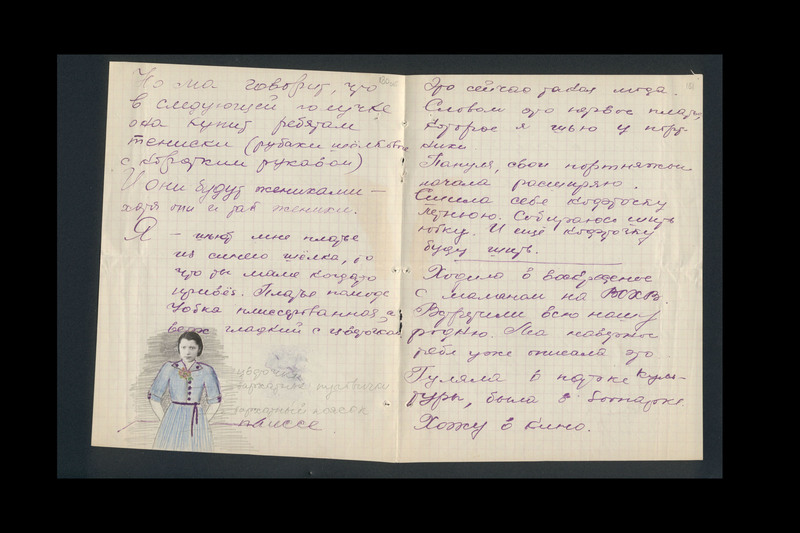 Но ма говорит, что
в следующей получке
она купит ребятам
тениски (рубахи шёлков
с коротким рукавом)
И они будут женихами —
хотя они и так женихи.
Я — шьют мне платье
из синего шёлка, то
что ты маме когдато
привёз. Платье
юбка плиссированная, а
верх гладкий с цветочком
цветочки
бархатные пуговички
бархатный поясок
плиссе
Это сейчас такая мода.
Словом это первое платье,
которое я шью у порт
нихи
Папуля, свои
начала расширяю.
Сшила себе кофточку
летнюю. Собираюсь шить
юбку. И ещё кофточку
буду шить.
Ходила в воскресенье
с маманом на ВСХВ.
Встретили всю нашу
родню. Ма наверное
тебе уже описала это
Гуляла в парке куль-
туры, была в зоопарке
Хожу в кино.